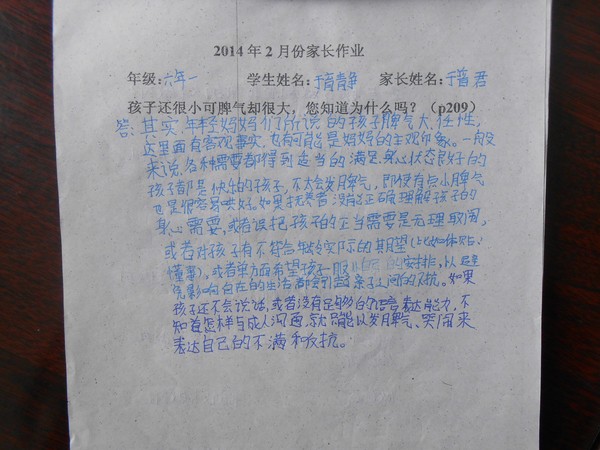 2014年2月份家长作业
年级:六年一 学生姓名:于青静 家长姓名:于君
孩子还很小可脾气却很大,您知道为什么吗?(p209)
答:其实,年轻妈妈们所说的孩子脾气大、任性,
这里面有客观事实,也有可能是妈妈的主观印象。一般
来说,各种需要都得到适当的满足,身心状态良好的
孩子都是快乐的孩子,不太会发脾气,即使有点小脾气
也是很容易哄好。如果抚养者没能正确理解孩子的
身心需要,或者误把孩子的正当需要是无理取闹,
或者对孩子有不符合年龄实际的期望(比如体贴、
懂事),或者单方面希望孩子服从自己的安排,以避
免影响自在的生活都会引起亲子之间的对抗。如果
孩子还不会说话,或者没有足够的语言表达能力,不
知道怎样与成人沟通,就只能以发脾气、哭闹来
表达自己的不满和反抗。